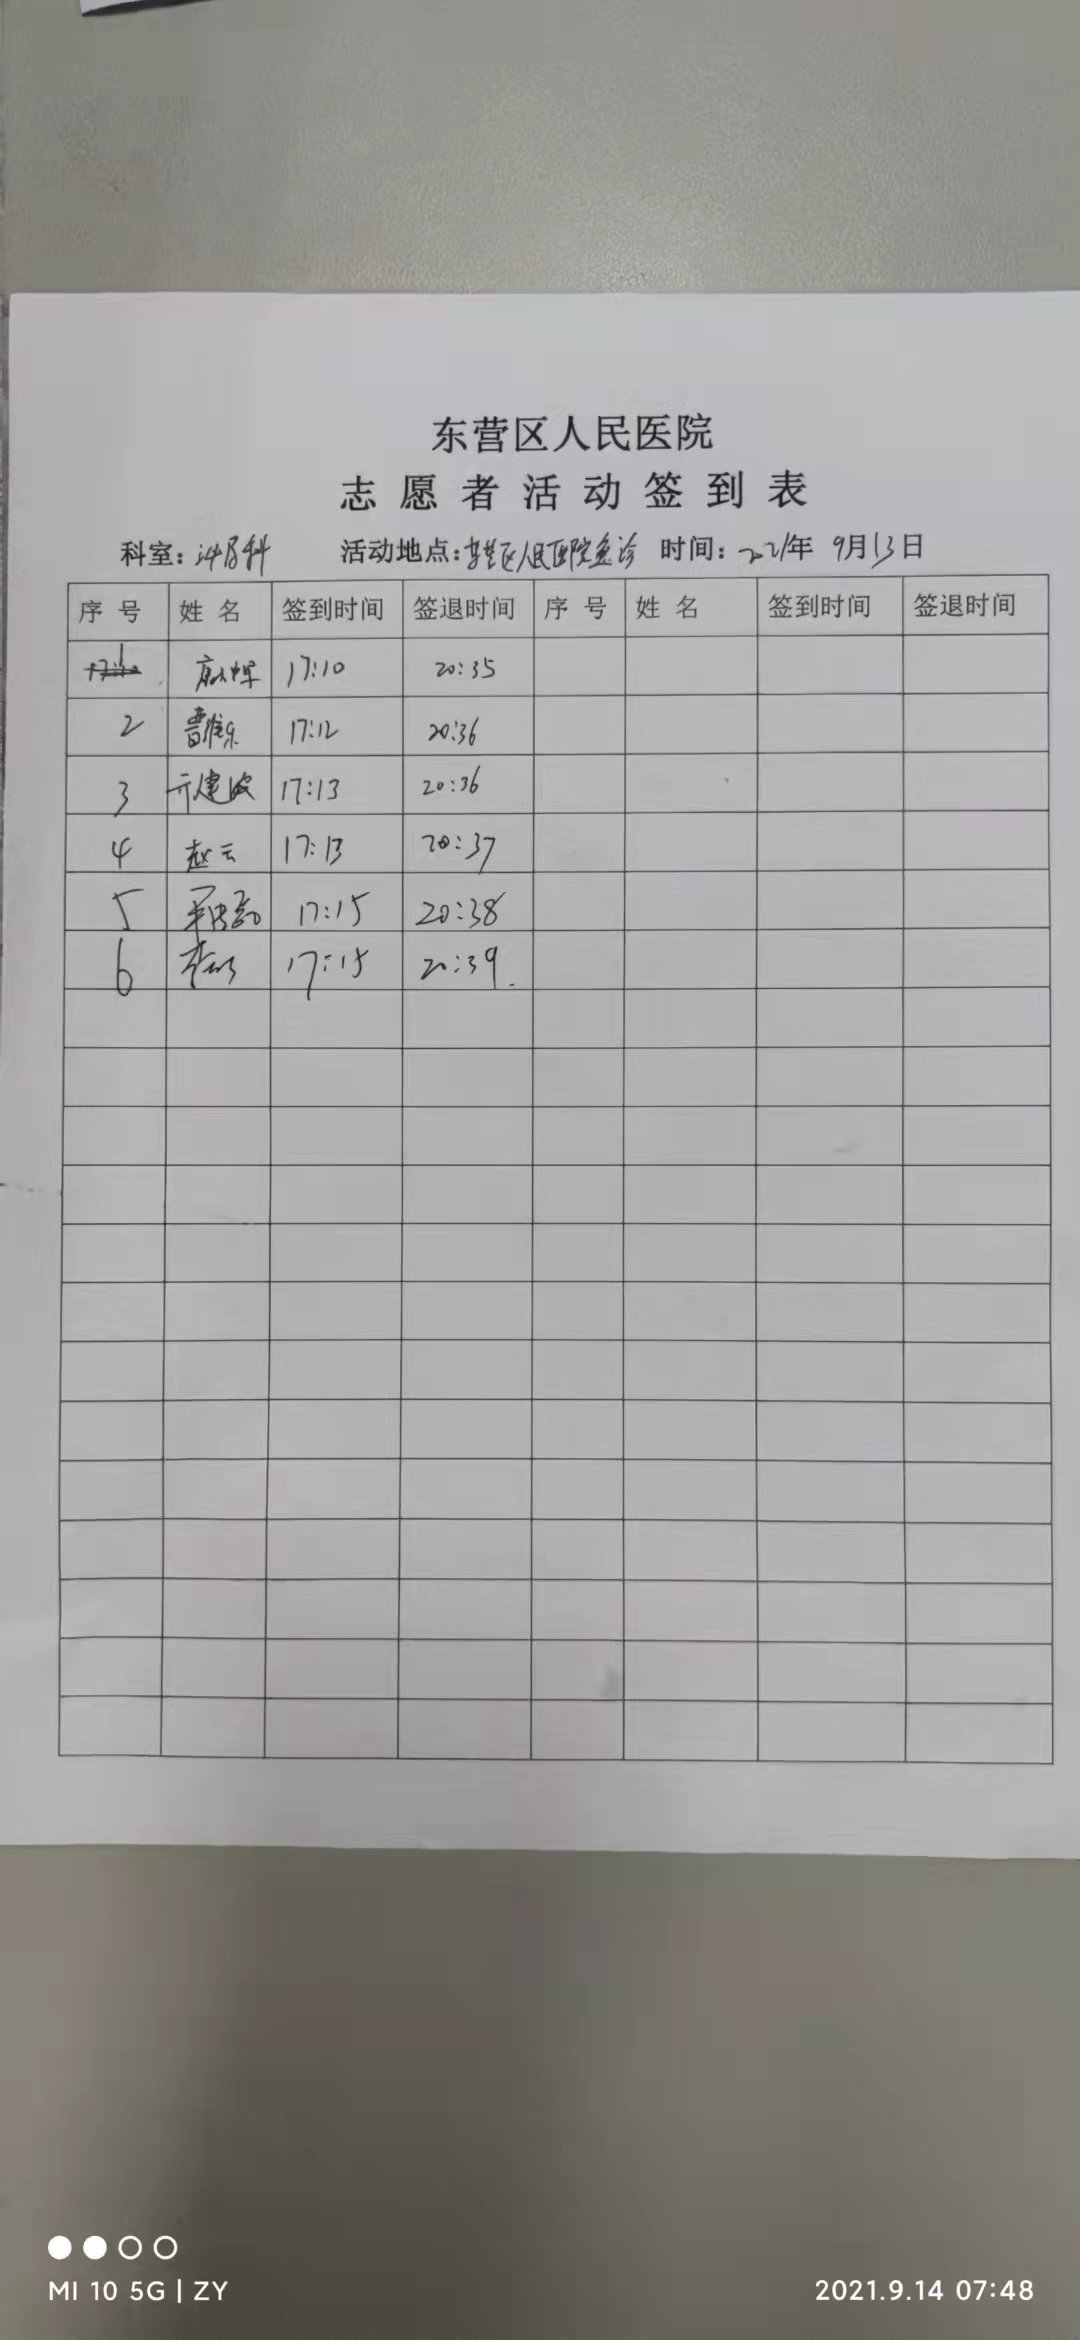 东营区人民医院
志愿者活动签到表
科室：泌尿科 活动地点：东营区人民医院急诊 时间：2021年 9月13日
序号 姓名 签到时间 签退时间 序号 姓名 签到时间 签退时间
1 17:10 20:35
2 曹维东 17:12 20:36
3 亓建波 17:13 20:36
4 赵云 17:13 20:37
5 17:15 20:38
6 17:15 20:39
MI 10 5G | ZY
2021.9.14 07:48